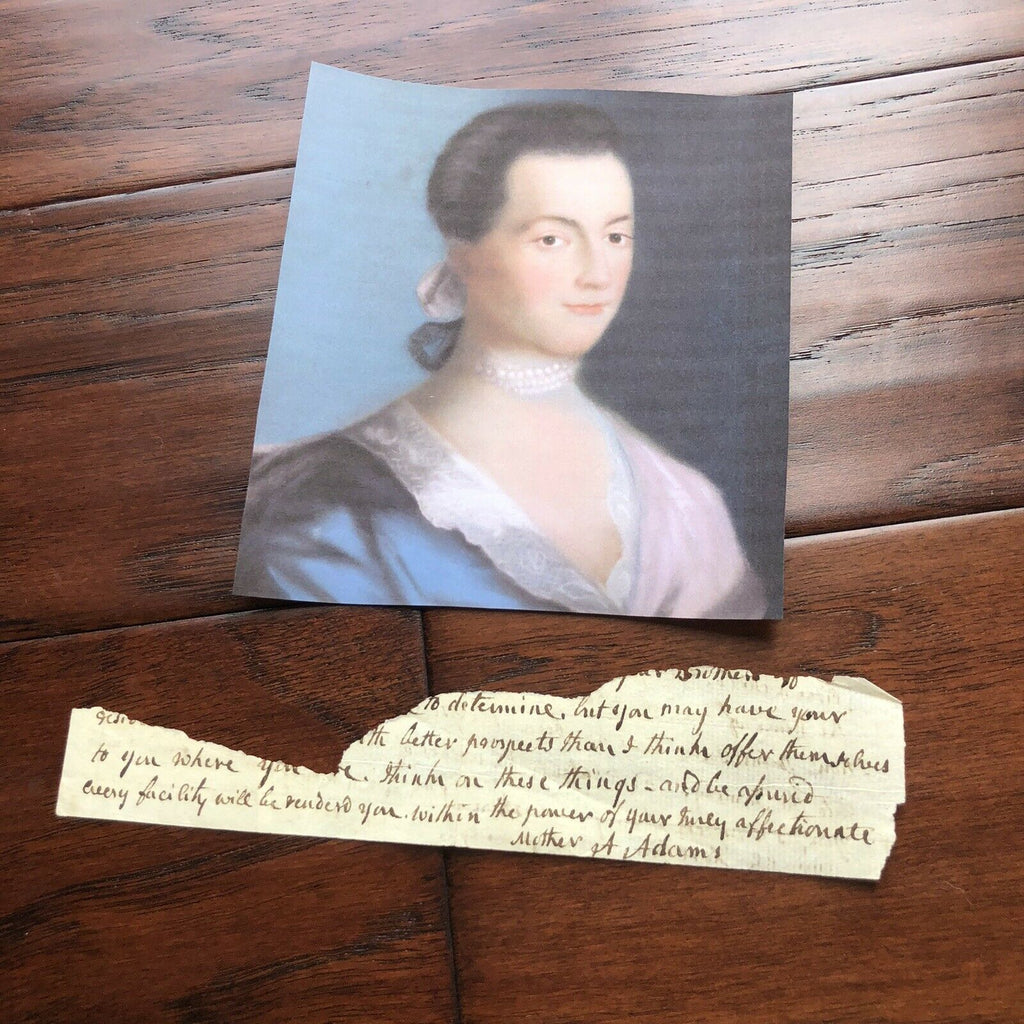 your Brothers to
to determine. but you may have your
th better prospects than I think offer themselves
to you where you are. think on these things - and be assured
every facility will be renderd you. within the power of your truly affectionate
Mother A Adams